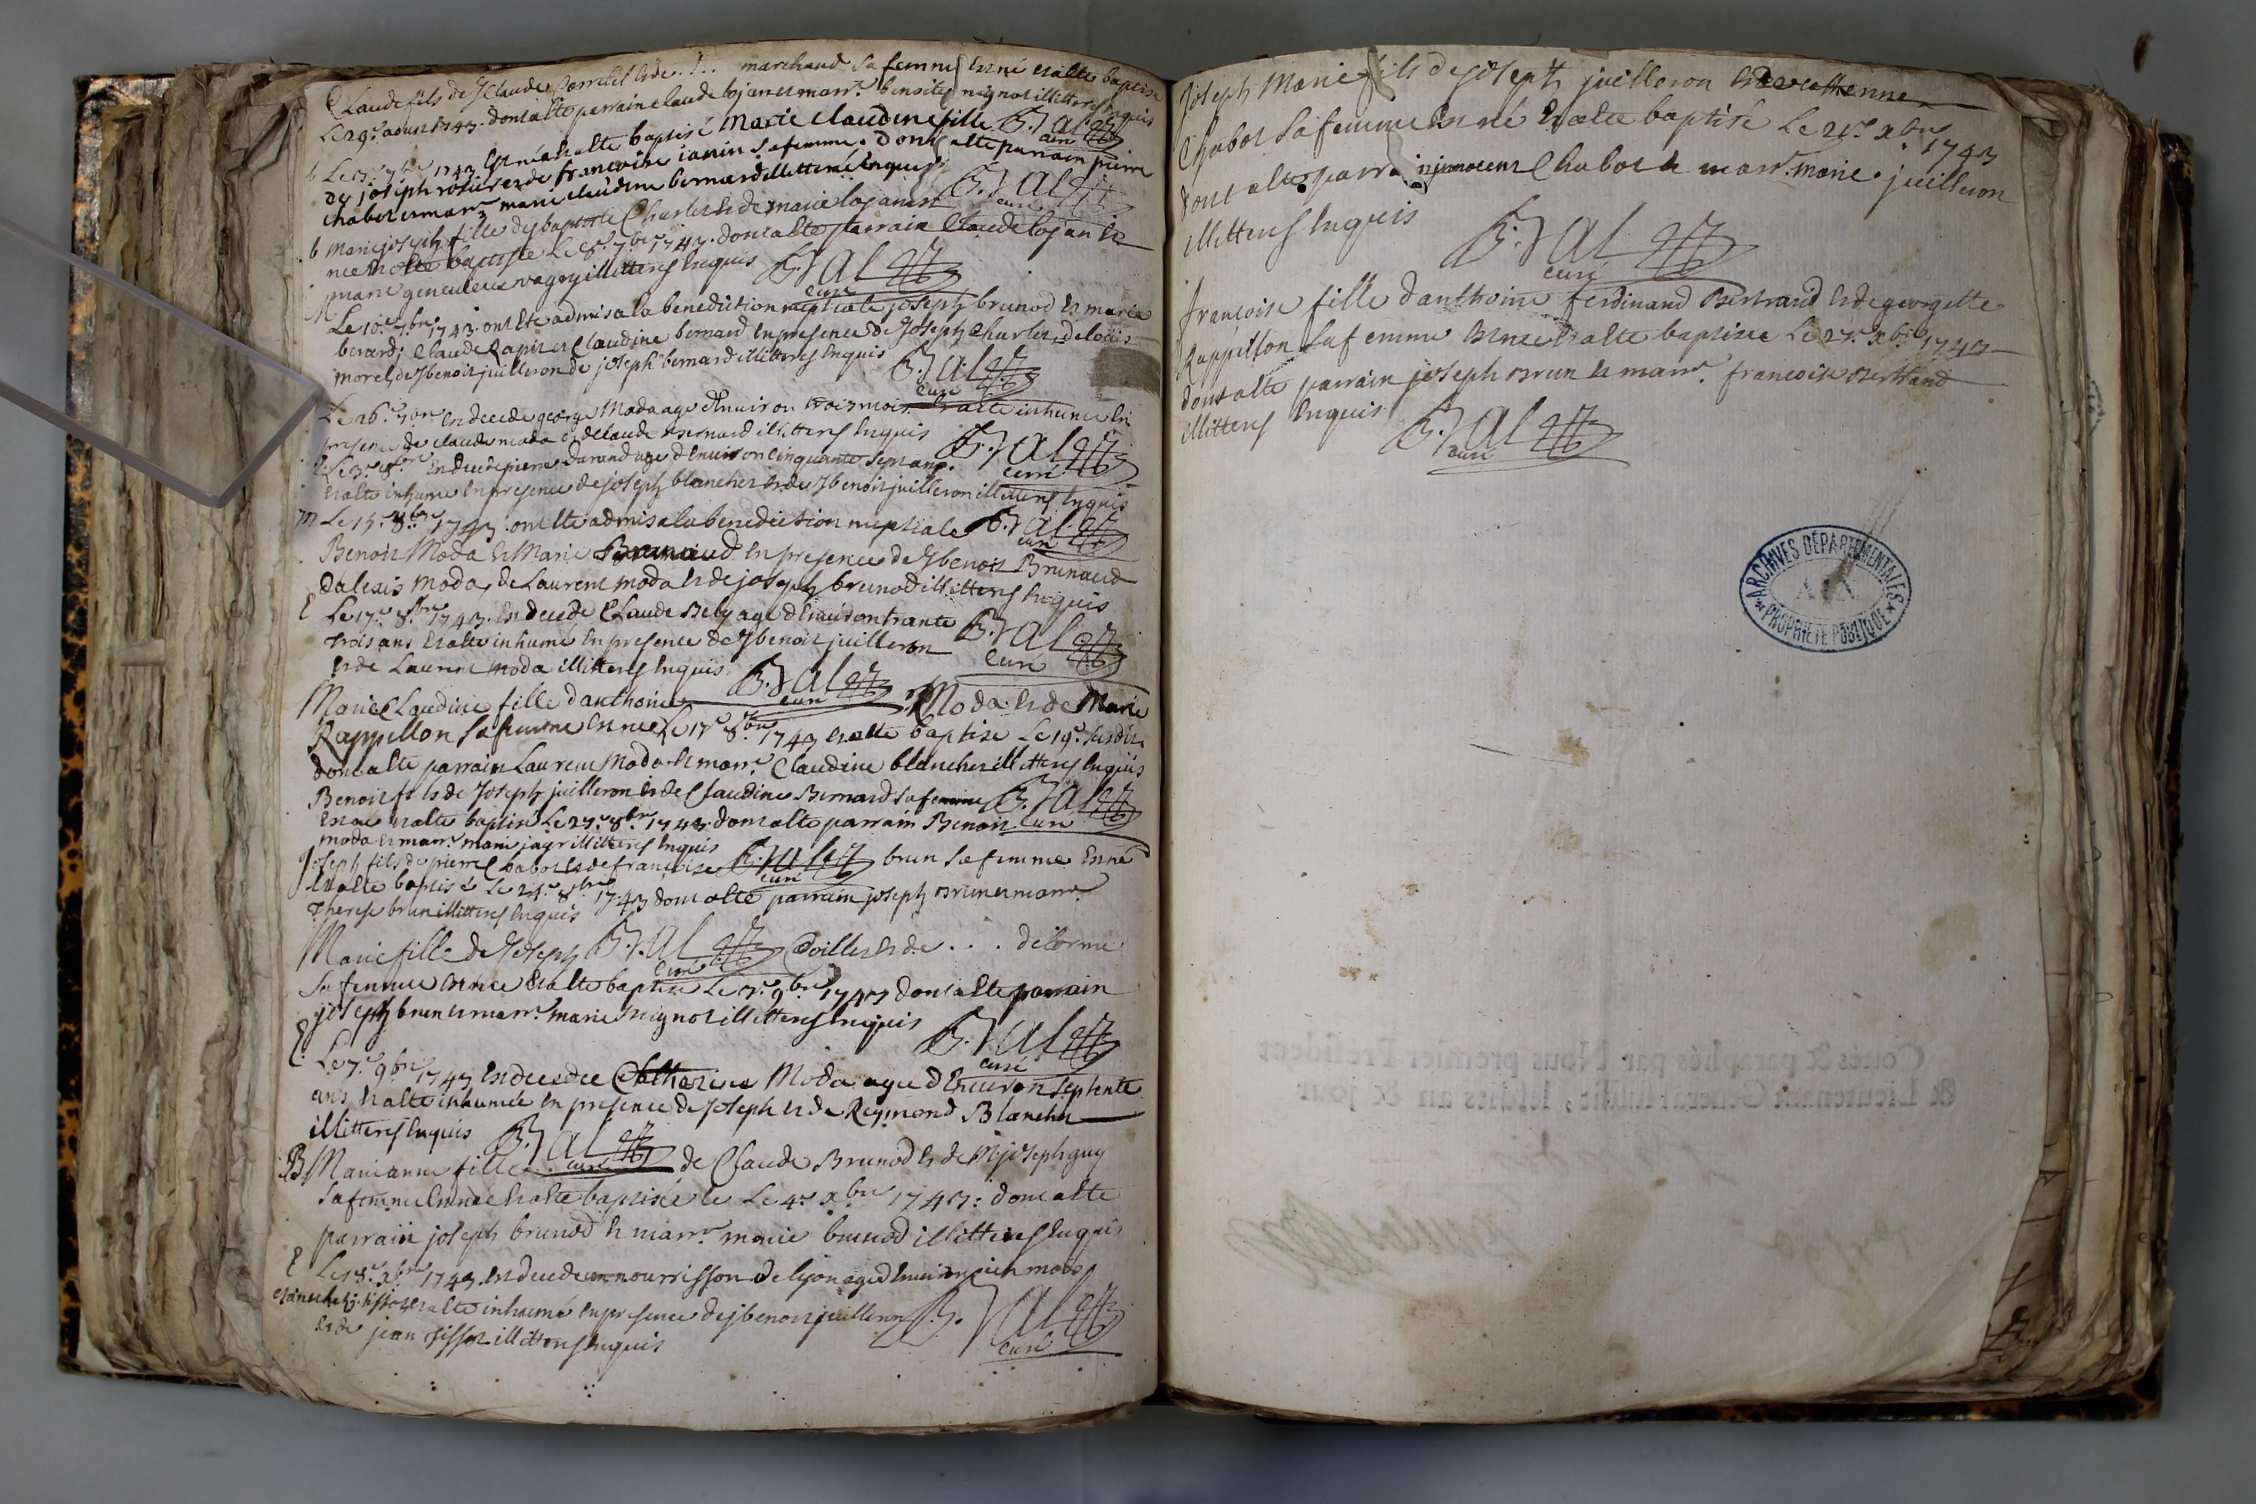 Claude fils de J Claude et de . . . marchand sa femme est né et a été baptisé
Le 29e aoust 1743. dont a été parrain claude lojan et marr.e benoite mignot illitterés enquis
B. Val curé
b Le 7bre 1743 est née et a été baptisé Marie claudine fille
de joseph et de francoise janin sa femme. dont a été parrain pierre
chabot et marr.e marie claudine bernard illitterés enquis
B. Val curé
b Marie joseph fille de j baptiste Charles et de marie lojan est
née et a été baptisée Le 8e 7bre 1743. dont a été parrain Claude lojan et
marie illitterés enquis
B. Val curé
M Le 10e 7bre 1743. ont été admis a la benediction nuptiale joseph brunod et marie
berard; Claude Rapit et Claudine bernard en presence de Joseph Charles, de loüis
morel, de J benoit juilleron de joseph bernard illitterés enquis
B. Val curé
Le 26e 7bre est decedé george Moda agé d'environ trois mois et a été inhumé en
presence de claude moda et de Claude Bernard illitterés enquis
B. Val curé
E Le 3e 8bre est decedé pierre Durand agé d'environ cinquante sept ans.
et a été inhumé en presence de joseph blanchet et de J benoit juilleron illitterés enquis
B. Val curé
m Le 15e 8bre 1743. ont été admis a la benediction nuptiale
Benoit Moda et Marie Brunaud en presence de J benoit Brunaud
d'alexis moda, de Laurent moda et de joseph brunod illitterés enquis
E Le 17e 8bre 1743. est decedé Claude Bely agé d'environ trante
trois ans et a été inhumé en presence de J benoit juilleron
et de Laurent moda illitterés enquis.
B. Val curé
Marie Claudine fille d'anthoine Moda et de Marie
Rappillon sa femme est née Le 17e 8bre 1743 et a été baptisée Le 19e susdit
dont a été parrain Laurent Moda et marr.e Claudine blanchet illitterés enquis
B. Val curé
Benoit fils de Joseph juilleron et de Claudine Bernard sa femme
est né et a été baptisé Le 27e 8bre 1743. dont a été parrain Benoit
moda et marr.e marie illitterés enquis
B. Val curé
Joseph fils de pierre Chabot et de francoise brun sa femme est né
et a été baptisé Le 8bre 1743 dont a été parrain joseph Brun et marr.e
Therese brun illitterés enquis
B. Val curé
Marie fille de Joseph Coillet et de . . . delorme
sa femme est née et a été baptisée Le 3e 9bre 1743 dont a été parrain
joseph brun et marr.e marie mignot illitterés enquis
B. Val curé
E. Le 7e 9bre 1743 est decedée Catherine Moda agée d'Environ septente
ans et a été inhumée en presence de Joseph et de Reymond Blanchet
illitterés enquis
B. Val curé
B Marianne fille de Claude Brunod et de M. joseph guy
sa femme est née et a été baptisée le Le 4e xbre 1743: dont a été
parrain joseph brunod et marr.e marie brunod illitterés enquis
E Le 18e xbre 1743. est decedé un nourrisson de lyon agé d'environ cien mois
et a été inhumé en presence de j benoit juilleron
et de jean tissot illitterés enquis
B. Val
curé
Joseph Marie fils de joseph juilleron et de estienne
Chabot sa femme est né et a été baptisé Le 21e xbre 1743
dont a été parrain innocent Chabot et marr.e marie juilleron
illitterés enquis
B. Val
curé
francoise fille d'anthoine ferdinand Bertrand et de georgette
Rappillon sa femme est née et a été baptisée Le 27e xbre 1743
dont a été parrain joseph Brun et marr.e francoise Bertrand
illitterés enquis
B. Val
curé
ARCHIVES DÉPARTEMENTALES
AIN
PROPRIÉTÉ PUBLIQUE
Cotés & paraphés par Nous premier Président
& Lieutenant Général susdit, lesdits an & jour